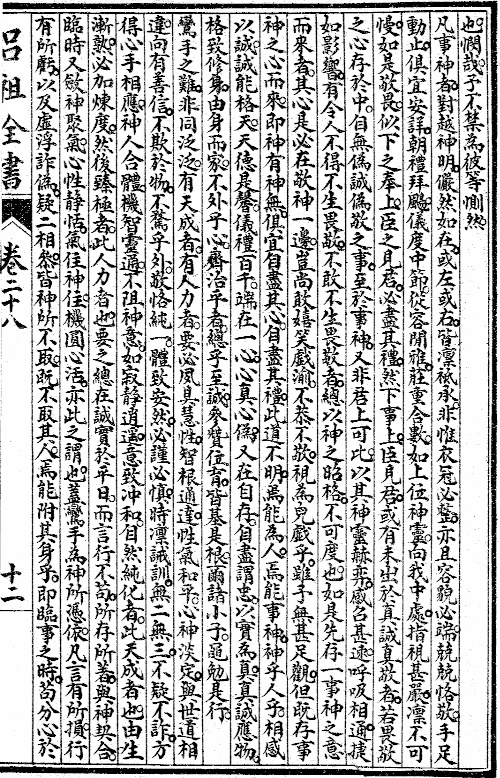 也憫哉予不禁爲彼等惻然
凡事神者對越神明儼然如在或左或右皆凛祗承非惟衣冠必整亦且容貌必端兢兢恪敬手足
動止俱宜安詳朝禮拜颺儀度中節從容閒雅莊重合數如上位神靈向我中處指視甚嚴凛不可
慢如是敬畏似下之奉上臣之見君必盡其禮然下事上臣見君或有未出於真誠真敬者若畏敬
之心存於中自無僞誠僞敬之事至於事神又非君上可比以其神靈赫奕感召甚速呼吸相通捷
如影響有令人不得不生畏敬不敢不生畏敬者總以神之昭格不可度也如是先存一事神之意
而來者其心是必在敬神一邊豈尚敢嬉笑戲渝不恭不敬視為兒戲乎雖予無甚足觀但既存事
神之心而來即神有神無俱宜自盡其心自盡其禮此道不明焉能為人焉能事神神乎人乎相感
以誠誠能格天天德是馨儀禮百千端在一心心真心僞又在自存自盡謂忠以實為真真誠應物
格致修身由身而家不外乎心齊治平者總乎至誠參贊位育皆基是根爾諸小子黽勉是行
鸞手之難非同泛泛有天成者有人力者要必夙具慧性智根通達性氣和平心神淡定與世道相
違向有善信不欺於物不騖乎外敬恪純一體致安然必謹必慎時凛誡訓無二無三不疑不訛方
得心手相應神人合體機智靈通不阻神意如寂靜逍遥意致冲和自然純化者此天成者也由生
漸熟必加煉度然後臻極者此人力者也要之總在誠實於平日而言行不苟所存所著與神契合
臨時又敏神聚氣心性靜恬氣住神住機圓心活亦此之謂也蓋鸞手為神所憑依凡言有所損行
有所虧以及虛浮詐僞疑二相參皆神所不取既不取其人焉能附其身乎即臨事之時苟分心於
呂祖全書
卷二十八
十二